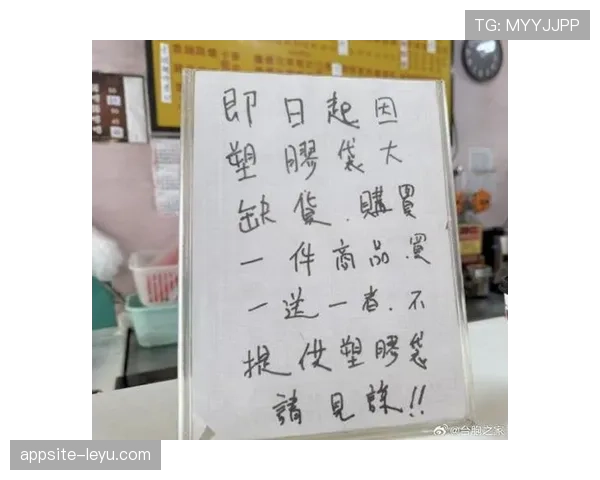 TG: MYYJJPP
即日起因
塑膠袋大
缺貨.購買
一件商品.買
一送一者.不
提供塑膠袋
請見諒!!
@台胞之家
appsite-leyu.com